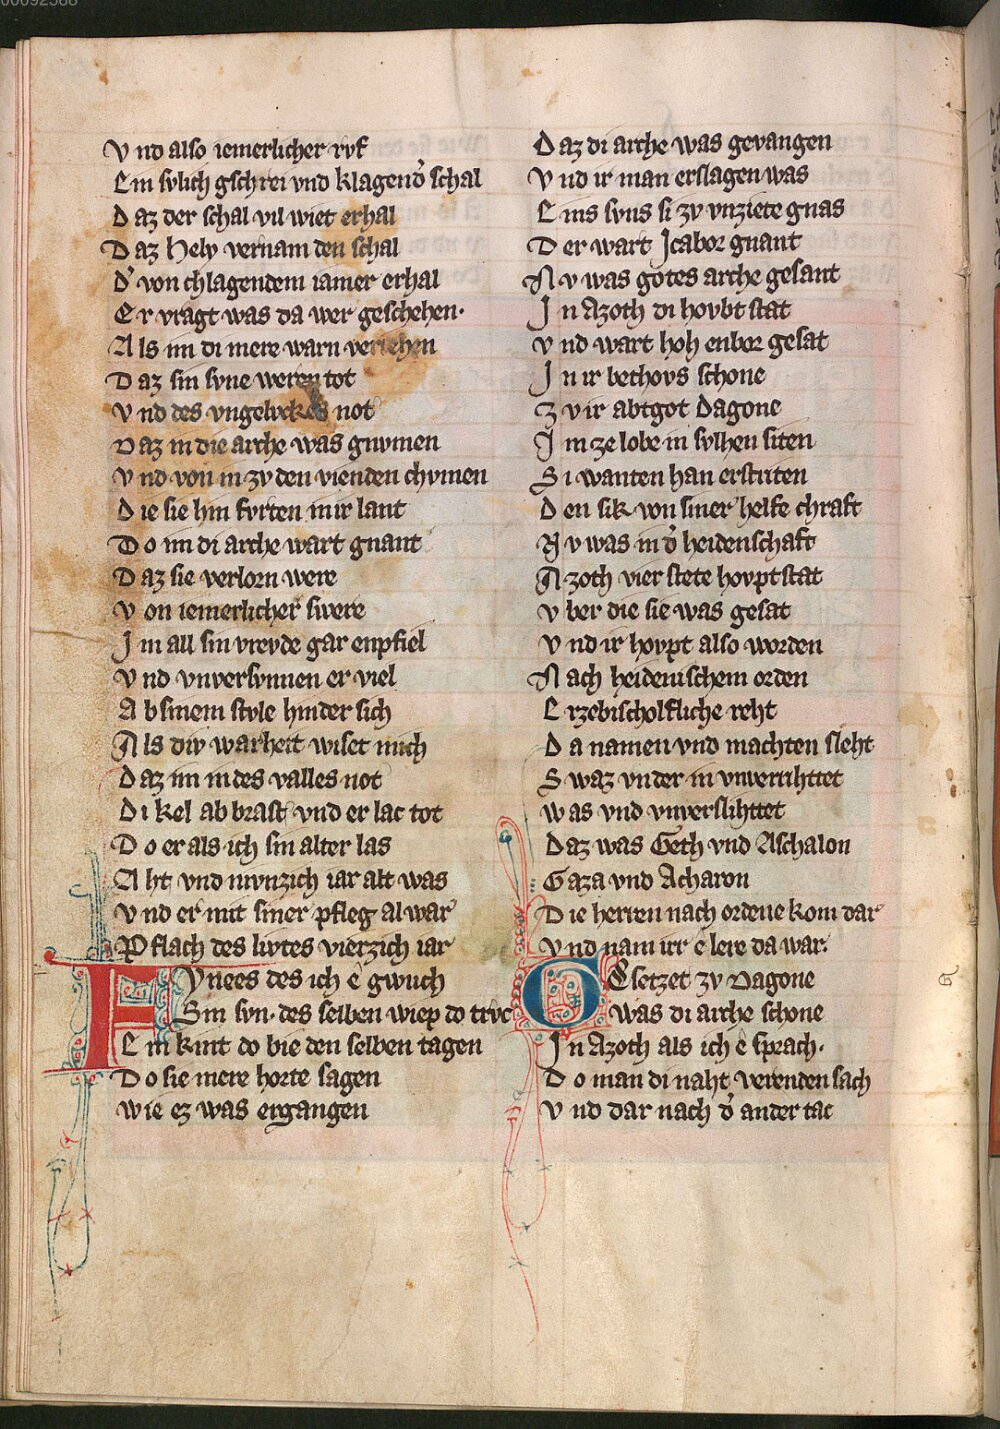 00092588
Vnd also iemerlicher rvf
Ein svlich gschrei vnd klagend̾ schal
Daz der schal vil wiet erhal
Daz Hely vernam den schal
D̾ von chlagendem iamer erhal
Er vragt was da wer geschehen·
Als im di mere warn veriehen
Daz sin svne weren tot
Vnd des vngelvckes not
Daz in die arche was gnvmen
Vnd von in zv den vienden chvmen
Die sie hin fvrten in ir lant
Do im di arche wart gnant
Daz sie verlorn were
Von iemerlicher swere
Im all sin vrevde gar enpfiel
Vnd vnversvnnen er viel
Ab sinem stvle hinder sich
Als div warheit wiset mich
Daz im in des valles not
Di kel ab brast vnd er lac tot
Do er als ich sin alter las
Aht vnd nivnzich iar alt was
Vnd er mit siner pfleg al war
Pflach des livtes vierzich iar
Fynees des ich ê gwuch
Sin svn· des selben wiep do trvc
Ein kint do bie den selben tagen
Do sie mere horte sagen
Wie ez was ergangen
Daz di arche was gevangen
Vnd ir man erslagen was
Eins svns si zv vnziete gnas
Der wart Icabor gnant
Nv was gotes arche gesant
In Azoth di hovbt stat
Vnd wart hoh enbor gesat
In ir bethovs schone
Zv ir abtgot Dagone
Im ze lobe in svlhen siten
Si wanten han erstriten
Den sik von siner helfe chraft
Nv was in d̾ heidenschaft
Azoth vier stete hovptstat
Vber die sie was gesat
Vnd ir hovpt also worden
Nach heidenischem orden
Erzebischolfliche reht
Da namen vnd machten sleht
Swaz vnder in vnverrihttet
Was vnd vnverslihttet
Daz was Geth vnd Aschalon
Gaza vnd Acharon
Die herren nach ordene kom dar
Vnd nam irr e lere da war·
Gesetzet zv Dagone
Was di arche schone
In Azoth als ich ê sprach·
Do man di naht verenden sach
Vnd dar nach d̾ ander tac